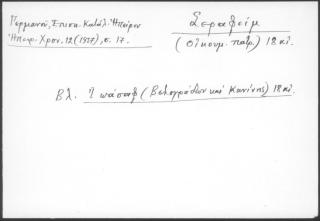 Γερμανού, Επισκ. Κατάλ. Ηπείρου
Ηπειρ. Χρον. 12 (1937), σ. 17.
Σεραφείμ
(Οικουμ. πατρ.) 18 αἰ.
Βλ. Ἰωάσαφ (Βελεγράδων καὶ Κανίνης) 18 αἰ.